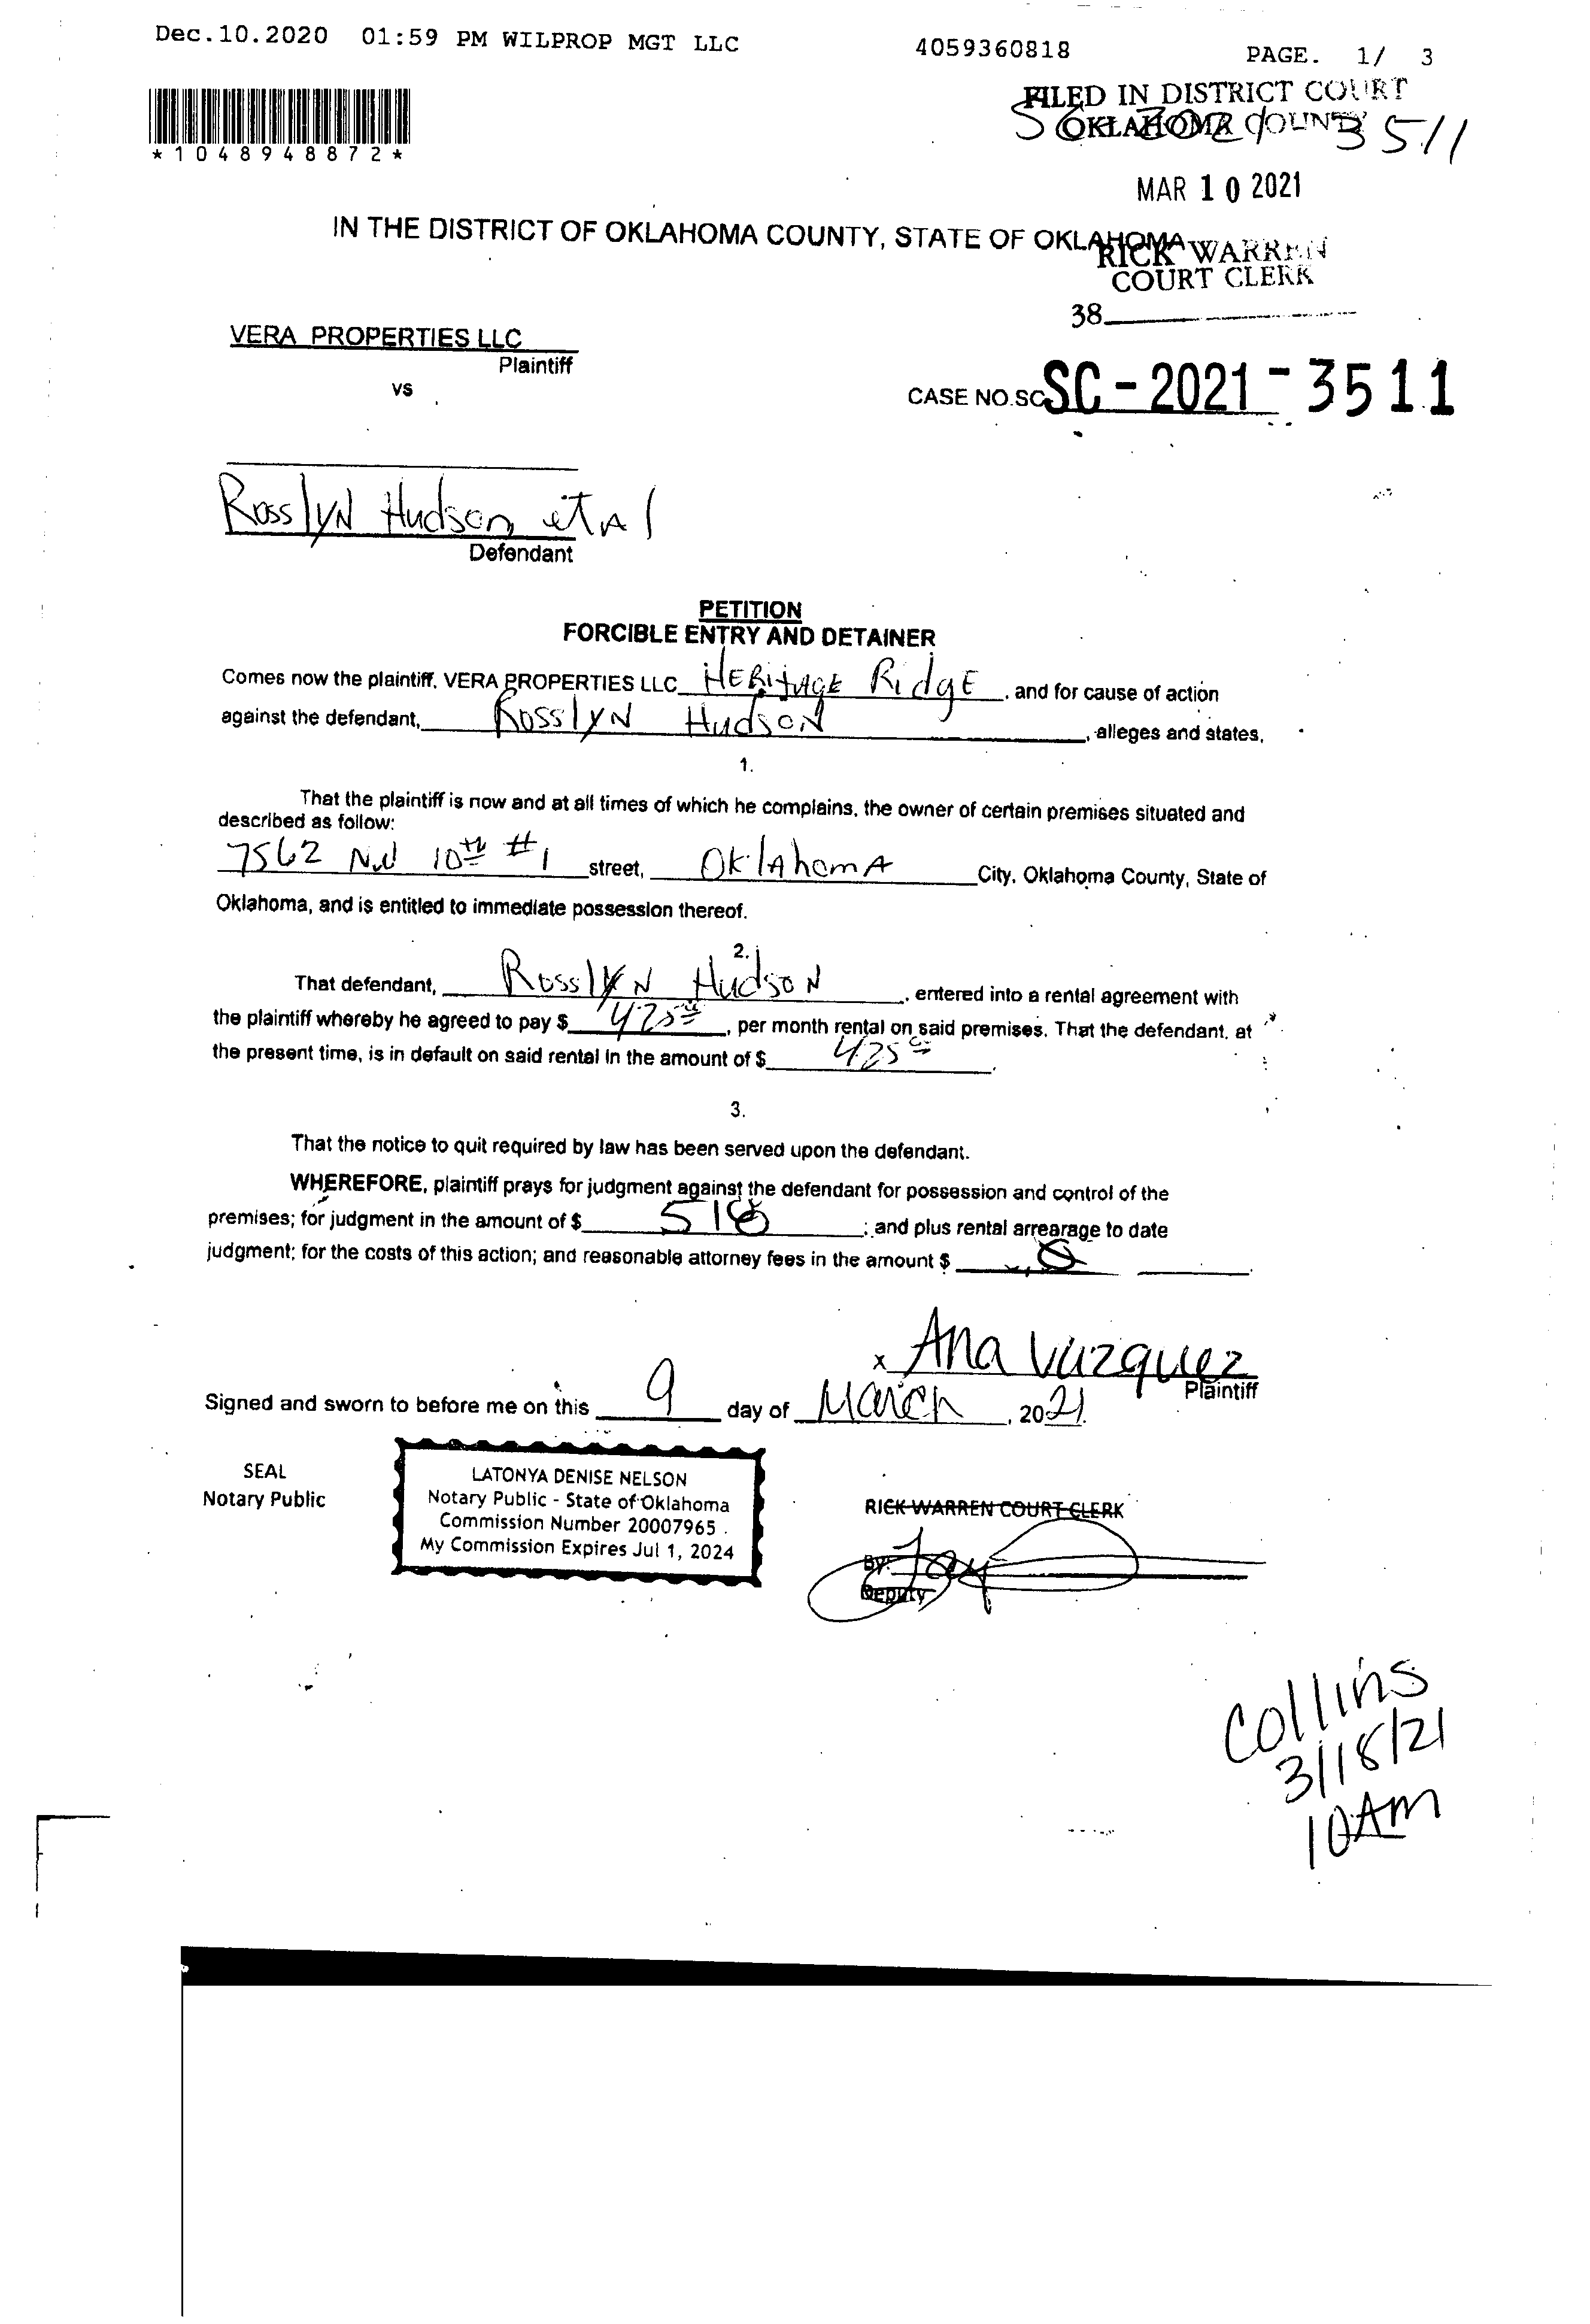 Dec.10.2020 01:59 PM WILPROP MGT LLC 4059360818 PAGE. 1/ 3
*1048948872*
FILED IN DISTRICT COURT
OKLAHOMA COUNTY
SC 2021 3511
MAR 10 2021
IN THE DISTRICT OF OKLAHOMA COUNTY, STATE OF OKLAHOMA
RICK WARREN
COURT CLERK
38
VERA PROPERTIES LLC
Plaintiff
vs
CASE NO.SC SC-2021-3511
Rosslyn Hudson, et Al
Defendant
PETITION
FORCIBLE ENTRY AND DETAINER
Comes now the plaintiff, VERA PROPERTIES LLC HERitAGE RidgE, and for cause of action
against the defendant, RosslyN HudsoN, alleges and states,
1.
That the plaintiff is now and at all times of which he complains, the owner of certain premises situated and
described as follow:
7562 NW 10th #1 street, OklAhomA City, Oklahoma County, State of
Oklahoma, and is entitled to immediate possession thereof.
2.
That defendant, RosslyN HudsoN, entered into a rental agreement with
the plaintiff whereby he agreed to pay $ 425.00, per month rental on said premises. That the defendant, at
the present time, is in default on said rental in the amount of $ 425.00.
3.
That the notice to quit required by law has been served upon the defendant.
WHEREFORE, plaintiff prays for judgment against the defendant for possession and control of the
premises; for judgment in the amount of $ 518; and plus rental arrearage to date
judgment; for the costs of this action; and reasonable attorney fees in the amount $ 0.
x Ana Vazquez
Plaintiff
Signed and sworn to before me on this 9 day of March, 2021.
SEAL
Notary Public
LATONYA DENISE NELSON
Notary Public - State of Oklahoma
Commission Number 20007965
My Commission Expires Jul 1, 2024
RICK WARREN COURT CLERK
By:
Deputy
Collins
3/18/21
10AM